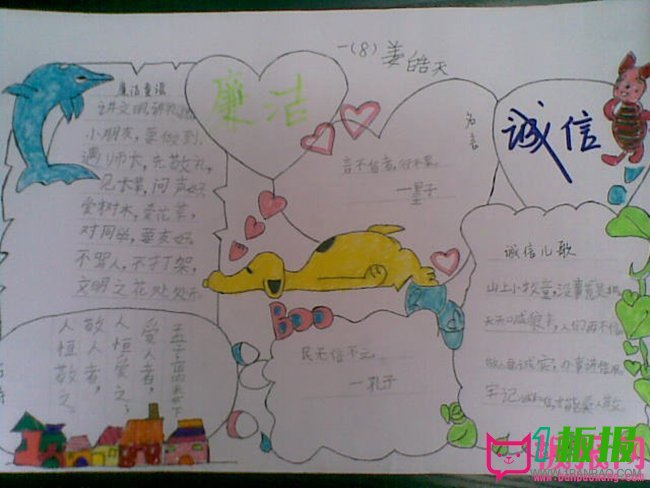 一(8) 姜皓天
廉洁童谣
讲文明,讲礼貌
小朋友,要做到。
遇师长,先敬礼,
见长辈,问声好。
爱树木,爱花草,
对同学,要友好。
不骂人,不打架,
文明之花处处
廉洁
名言
言不信者,行不果。
—墨子
诚信
诚信儿歌
山上小牧童,没事
天天喊狼来,人们再不信
做人要诚实,办事讲信用
牢记
爱人者,
人恒爱之;
敬人者,
人恒敬之。
BOO
民无信不立。
—孔子
板报网
WWW.1BANBAO.COM
www.banbaowang.com